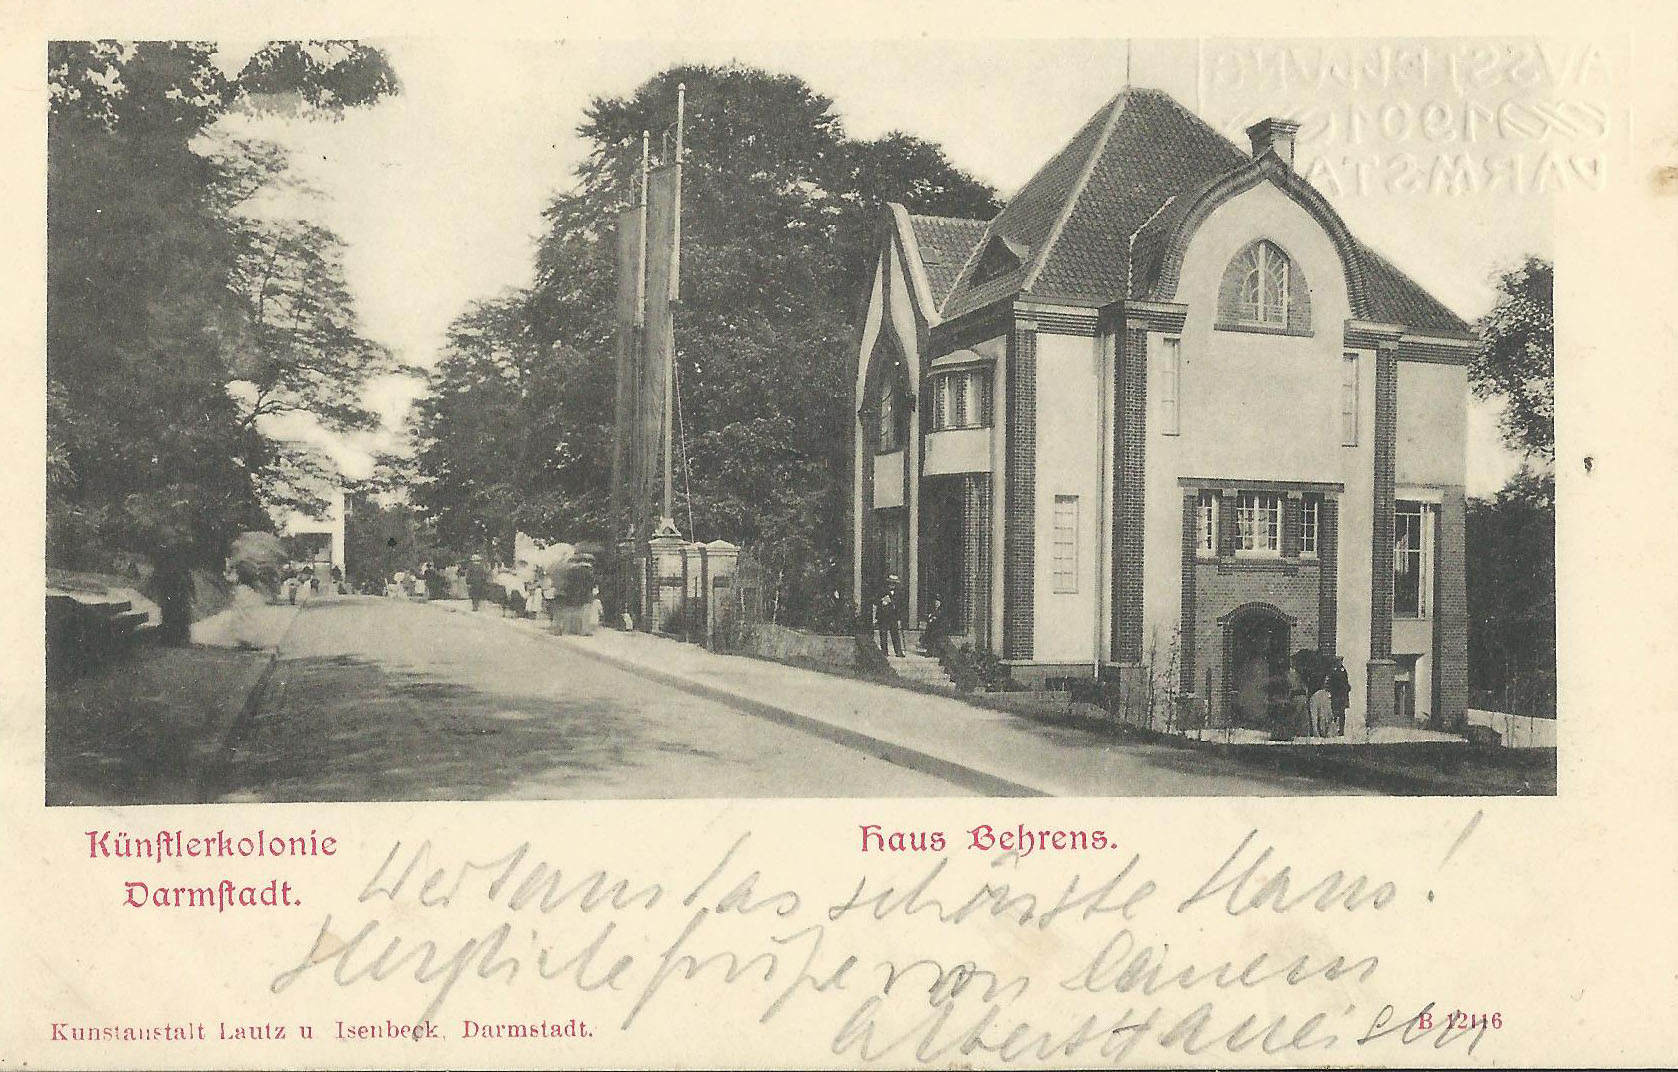 AUSSTELLUNG
1901
DARMSTA
Künstlerkolonie
Darmstadt.
Haus Behrens.
Weitaus das schönste Haus!
Herzliche Grüße von
Kunstanstalt Lautz u. Isenbeck, Darmstadt.
B 12116